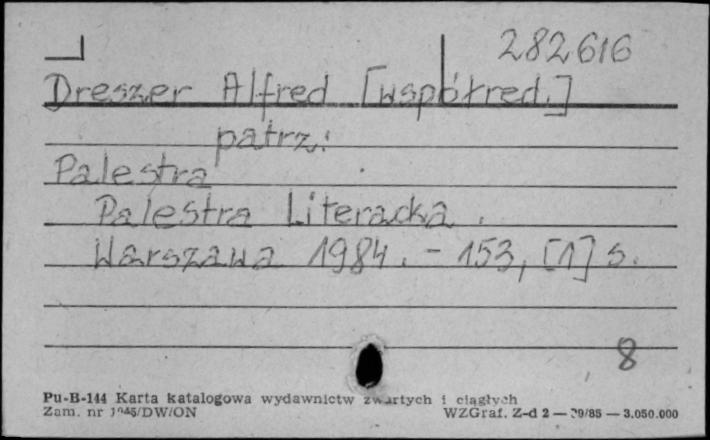 282616
Dreszer Alfred [współred.]
patrz:
Palestra
Palestra Literacka.
Warszawa 1984. - 153, [1] s.
8
Pu-B-144 Karta katalogowa wydawnictw zwartych i ciągłych
Zam. nr 1045/DW/ON WZGraf. Z-d 2 — 29/85 — 3.050.000